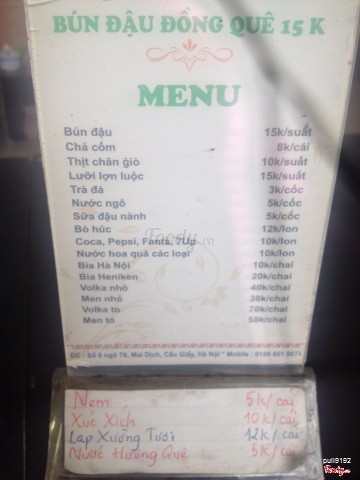 BÚN ĐẬU ĐỒNG QUÊ 15 K
MENU
Bún đậu 15k/suất
Chả cốm 8k/cái
Thịt chân giò 10k/suất
Lưỡi lợn luộc 15k/suất
Trà đá 3k/cốc
Nước ngô 5k/cốc
Sữa đậu nành 5k/cốc
Bò húc 12k/lon
Coca, Pepsi, Fanta, 7Up 10k/lon
Nước hoa quả các loại 10k/lon
Bia Hà Nội 10k/chai
Bia Heniken 20k/chai
Volka nhỏ 40k/chai
Men nhỏ 38k/chai
Volka to 70k/chai
Men to 58k/chai
Foody.vn
ĐC : Số 8 ngõ 76, Mai Dịch, Cầu Giấy, Hà Nội * Mobile :
Nem 5k/ cái
Xúc Xích 10k/ cái
Lạp Xưởng Tươi 12k/ cái
Nước Hương Quê 5k/ cái
pull9192
Foody.vn